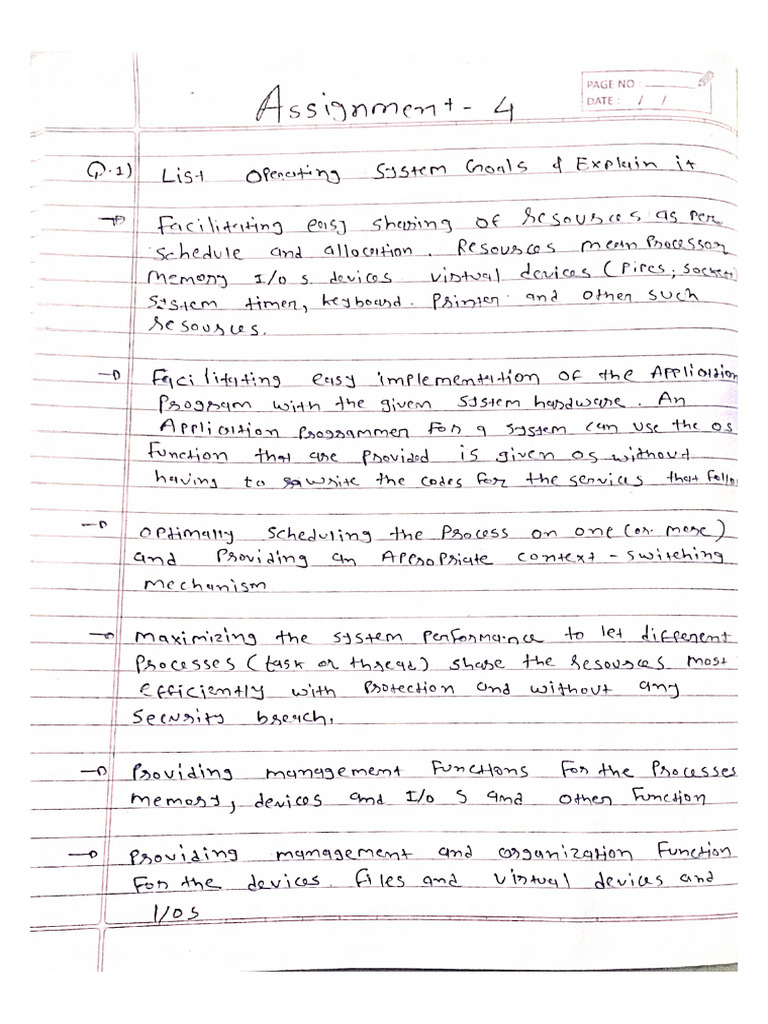 PAGE NO :
DATE : / /
Assignment - 4
Q.1) List operating system Goals & Explain it
Facilitating easy sharing of resources as per
schedule and allocation. Resources mean Processor
memory I/o s. devices virtual devices (Pipes, socket)
system timer, keyboard. Printer and other such
resources.
Facilitating easy implementation of the Application
Program with the given system hardware. An
Application Programmer for a system can use the os
Function that are provided is given os without
having to rewrite the codes for the services that follo
Optimally scheduling the process on one (or. more)
and Providing an Appropriate context - switching
mechanism
maximizing the system performance to let different
Processes (task or thread) share the resources most
efficiently with Protection and without any
security breach.
Providing management Functions For the Processes
memory, devices and I/o S and other Function
Providing management and organization Function
For the devices. files and virtual devices and
I/OS